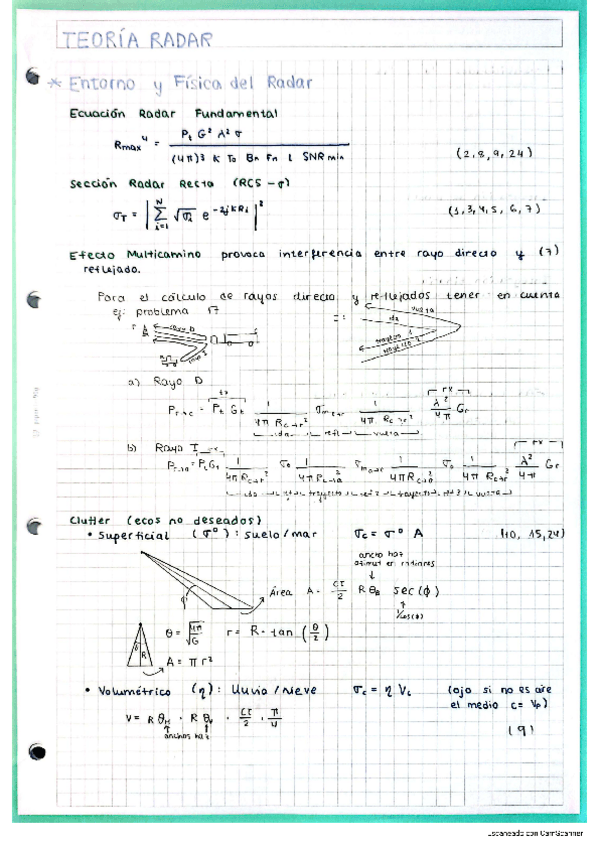 TEORÍA RADAR
* Entorno y Física del Radar
Ecuación Radar Fundamental
Rmax⁴ = Pt G² λ² σ / (4π)³ K To Bn Fn L SNR min (2,8,9,24)
Sección Radar Recta (RCS - σ)
σT = | Σ i=1 N √σi e^-2jKRi |² (1,3,4,5,6,7)
Efecto Multicamino provoca interferencia entre rayo directo y (7)
reflejado.
Para el cálculo de rayos directo y reflejados tener en cuenta
ej: problema 17
vuelta
ida
a) Rayo D
tx rx
Pt Gt 1 / 4π Rc→r² 1 / 4π Rc→r² λ² / 4π Gr
ida refl. vuelta
b) Rayo I
rx
Pt Gt σ0 σ0 λ² / 4π Gr
Clutter (ecos no deseados)
• Superficial (σ°): suelo/mar σc = σ° A (10, 15, 24)
ancho haz
azimut en radianes
Área A = cτ/2 R θB sec(φ)
1/cos(φ)
θ = √4π/G r = R · tan (θ/2)
θ
R
A = π r²
• Volumétrico (η): lluvia / nieve σc = η Vc (ojo si no es aire
el medio c = Vp)
V = R θH · R θV · cτ/2 · π/4 (9)
anchos haz
Escaneado con CamScanner